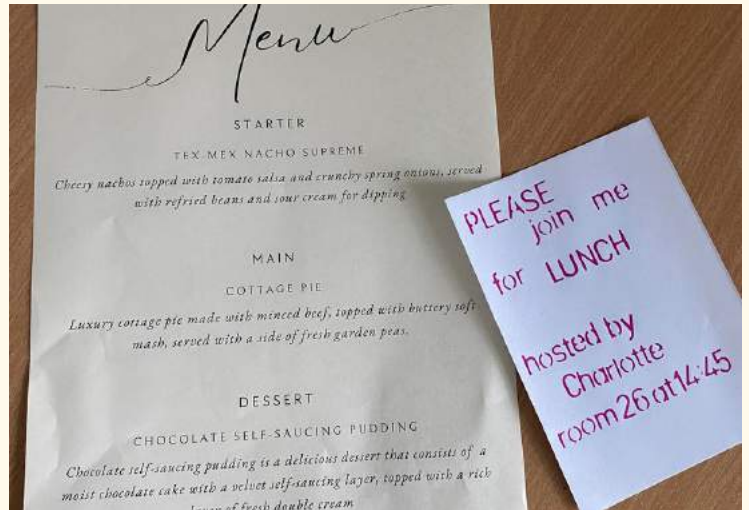 Menu
STARTER
TEX-MEX NACHO SUPREME
Cheesy nachos topped with tomato salsa and crunchy spring onions, served
with refried beans and sour cream for dipping
MAIN
COTTAGE PIE
Luxury cottage pie made with minced beef, topped with buttery soft
mash, served with a side of fresh garden peas.
DESSERT
CHOCOLATE SELF-SAUCING PUDDING
Chocolate self-saucing pudding is a delicious dessert that consists of a
moist chocolate cake with a velvet self-saucing layer, topped with a rich
layer of fresh double cream
PLEASE
join me
for LUNCH
hosted by
Charlotte
room 26 at 14:45